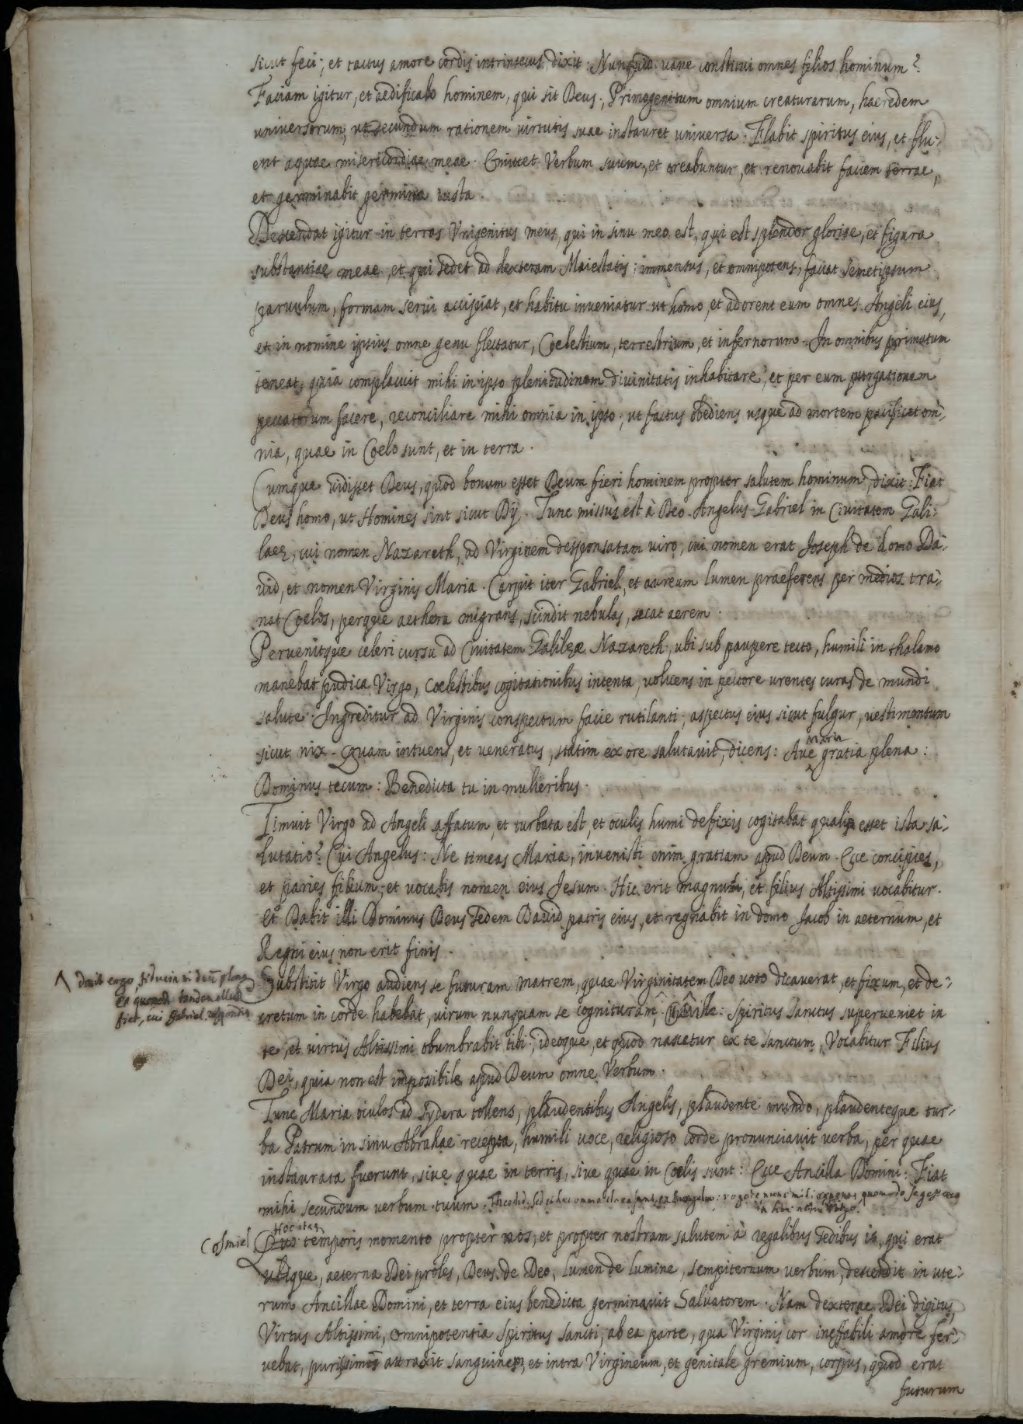 sicut feci; et tactus amore cordis intrinsecus, dixit: Nunquid vane constitui omnes filios hominum?
Faciam igitur, et aedificabo hominem, qui sit Deus, Primogenitum omnium creaturarum, haeredem
universorum, ut secundum rationem virtutis suae instauret universa. Flabit spiritus eius, et flu-
ent aquae misericordiae meae. Emittet Verbum suum, et creabuntur, et renouabit faciem terrae,
et germinabit germina iusta
Descendat igitur in terras Unigenitus meus, qui in sinu meo est, qui est splendor gloriae, et figura
substantiae meae, et qui sedet ad dexteram Maiestatis: immensus, et omnipotens, faciat semetipsum
paruulum, formam serui accipiat, et habitu inveniatur ut homo, et adorent eum omnes Angeli eius,
et in nomine ipsius omne genu flectatur, Coelestium, terrestrium, et infernorum. In omnibus primatum
teneat, quia complacuit mihi in ipso plenitudinem divinitatis inhabitare, et per eum purgationem
peccatorum facere, reconciliare mihi omnia in ipso, ut factus obediens usque ad mortem pacificet om-
nia, quae in Coelo sunt, et in terra.
Cumque vidisset Deus, quod bonum esset Deum fieri hominem propter salutem hominum, dixit: Fiat
Deus homo, ut Homines sint sicut Dij. Tunc missus est à Deo Angelus Gabriel in Civitatem Gali-
laeae, cui nomen Nazareth, ad Virginem desponsatam viro, cui nomen erat Joseph de domo Da-
uid, et nomen Virginis Maria. Carpit iter Gabriel, et aureum lumen praeferens per medios tra-
nat Coelos, perque aethera migrans, scindit nebulas, secat aerem.
Peruenitque celeri cursu ad Civitatem Galileae Nazareth, ubi sub paupere tecto, humili in thalamo
manebat pudica Virgo, Coelestibus cogitationibus intenta, voluens in pectore urentes curas de mundi
salute. Ingreditur ad Virginis conspectum facie rutilanti, aspectus eius sicut fulgur, vestimentum
sicut nix. Quam intuens, et veneratus, statim ex ore salutauit, dicens: Ave Maria gratia plena:
Dominus tecum: Benedicta tu in mulieribus.
Timuit Virgo ad Angeli affatum, et turbata est, et oculis humi defixis cogitabat qualis esset ista sa-
lutatio? Cui Angelus: Ne timeas Maria, invenisti enim gratiam apud Deum. Ecce concipies,
et paries filium, et vocabis nomen eius Jesum. Hic erit magnus, et filius Altissimi vocabitur.
Et Dabit illi Dominus Deus sedem David patris eius, et regnabit in domo Jacob in aeternum, et
Regni eius non erit finis.
Substitit Virgo audiens se futuram matrem, quae Virginitatem Deo voto dicauerat, et fixum, et de-
cretum in corde habebat, virum nunquam se cognituram, ille: Spiritus Sanctus superueniet in
te, et virtus Altissimi obumbrabit tibi, ideoque, et quod nascetur ex te sanctum, Vocabitur Filius
Dei, quia non est impossibile apud Deum omne Verbum.
Tunc Maria oculos ad sydera tollens, plaudentibus Angelis, plaudente mundo, plaudenteque tur-
ba Patrum in sinu Abrahae recepta, humili voce, religioso corde pronunciavit verba, per quae
instaurata fuerunt, sive quae in terris, sive quae in Coelis sunt: Ecce Ancilla Domini. Fiat
mihi secundum verbum tuum.
Cosmiel Hoc temporis momento propter nos, et propter nostram salutem à regalibus sedibus is, qui erat
ubique, aeterna Dei proles, Deus de Deo, lumen de lumine, sempiternum verbum, descendit in ute-
rum Ancillae Domini, et terra eius benedicta germinauit Salvatorem. Nam dexterae Dei digitus,
Virtus Altissimi, omnipotentia Spiritus Sancti, ab ea parte, qua Virginis cor ineffabili amore fer-
vebat, purissimum attraxit sanguinem, et intra Virgineum, et genitale gremium, corpus, quod erat
futurum